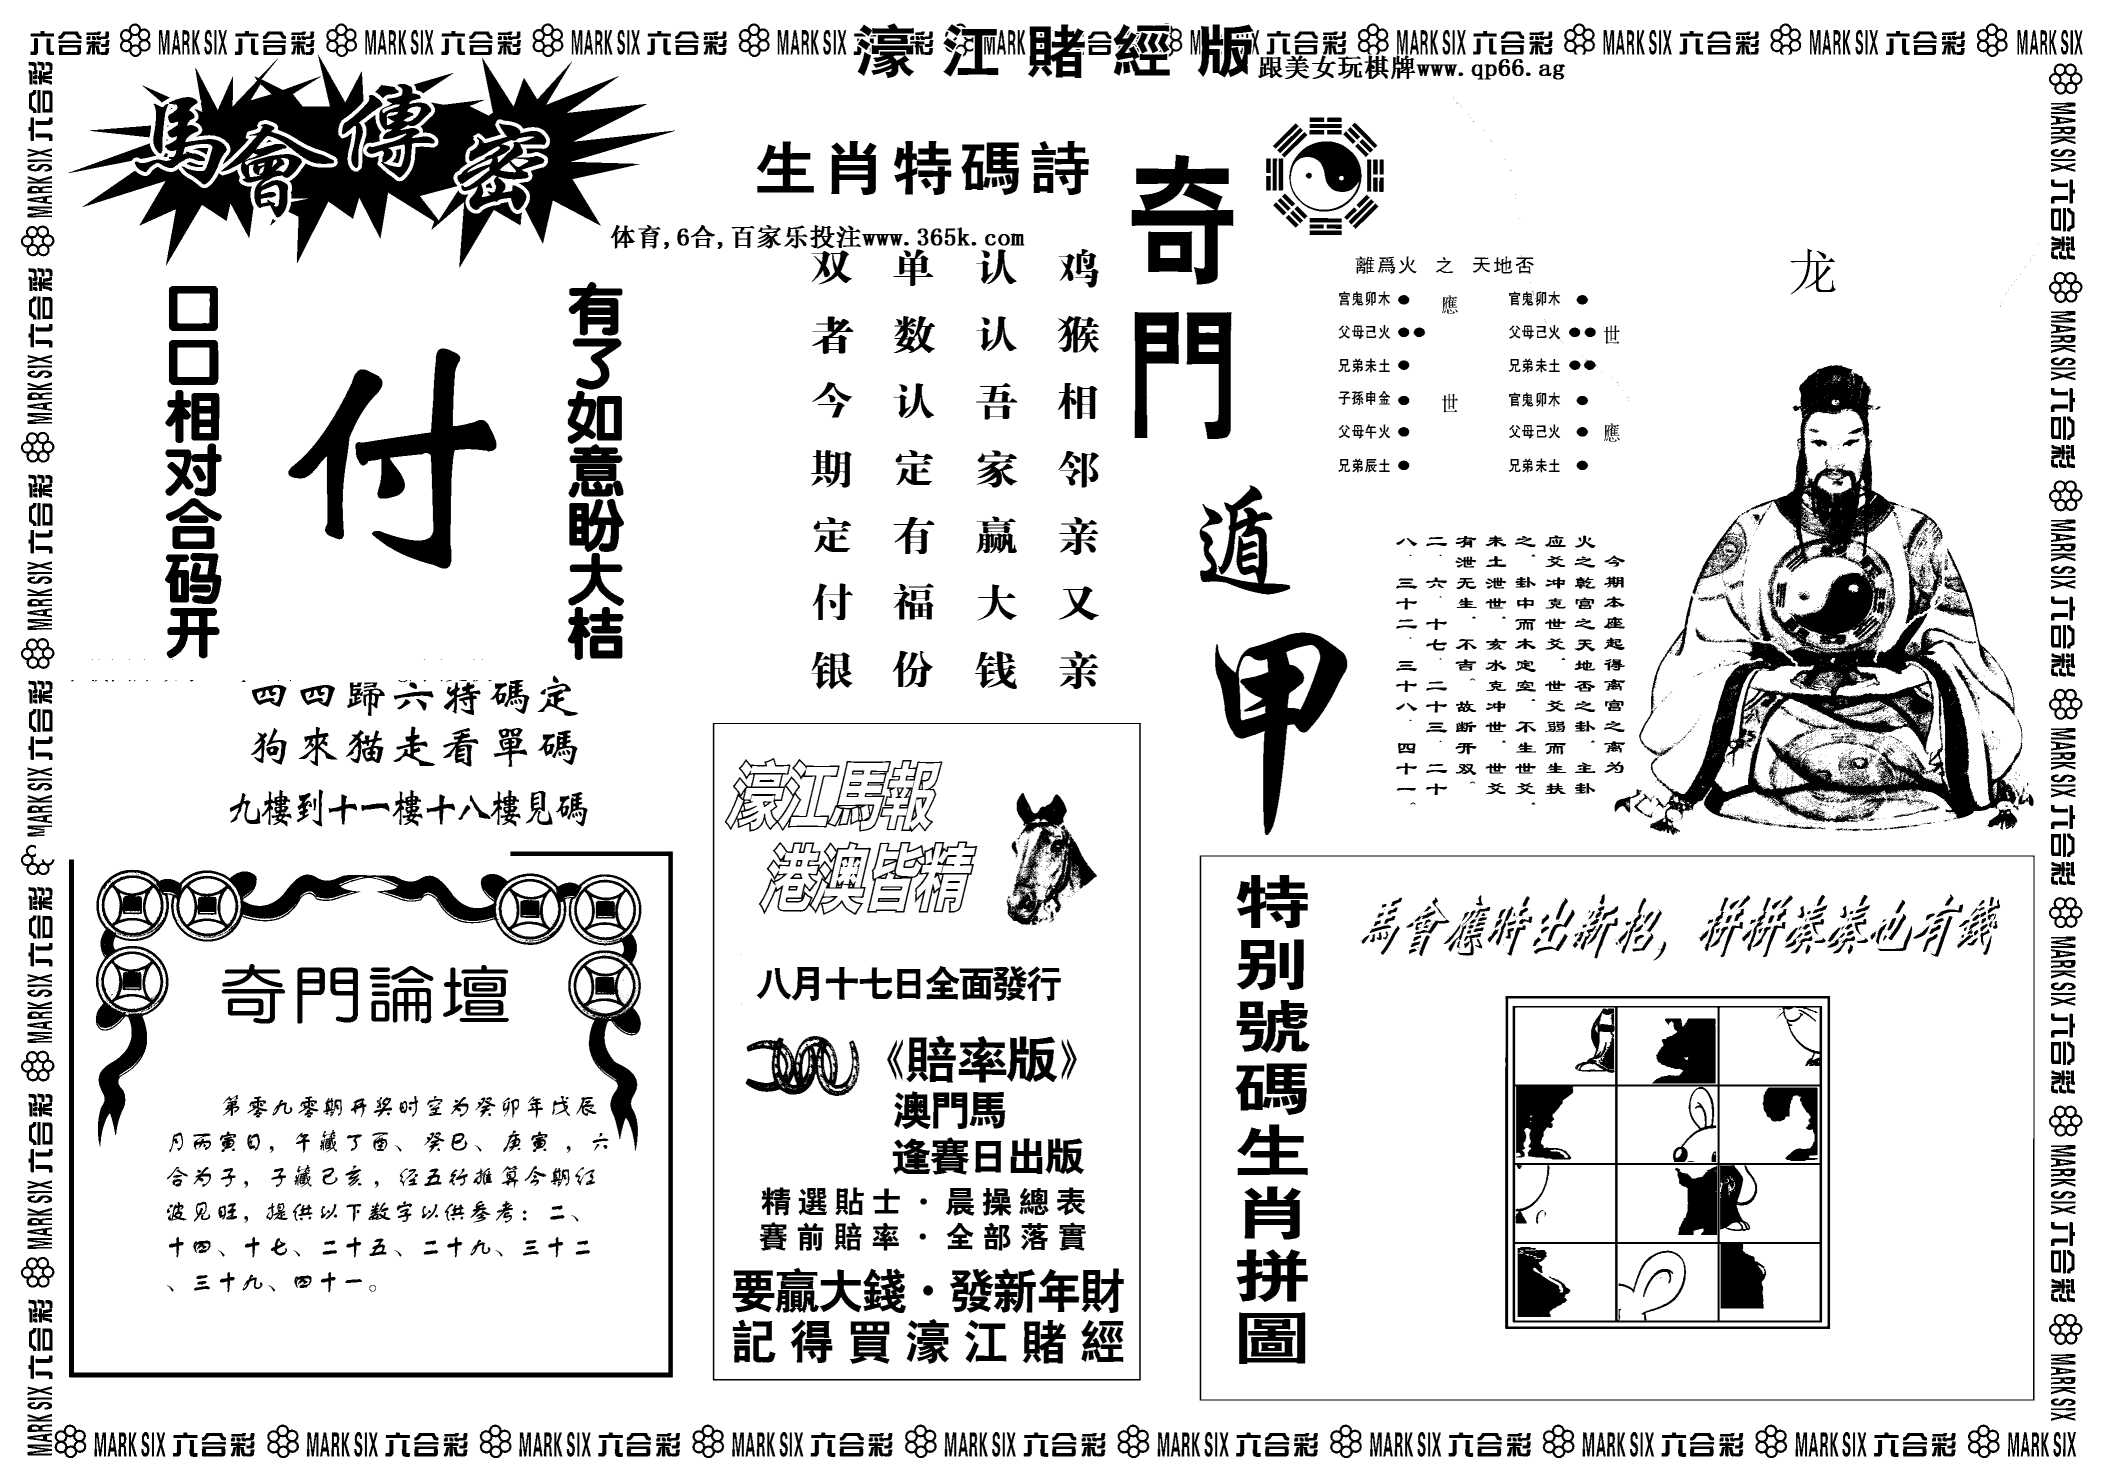 六合彩 MARK SIX 六合彩 MARK SIX 六合彩 MARK SIX 六合彩 MARK SIX 六合彩 MARK SIX 六合彩 MARK SIX 六合彩 MARK SIX 六合彩 MARK SIX 六合彩 MARK SIX 六合彩 MARK SIX
濠江賭經版
跟美女玩棋牌www.qp66.ag
馬會傳密
有了如意盼大桔
付
口口相对合码开
四四歸六特碼定
狗來猫走看單碼
九樓到十一樓十八樓見碼
生肖特碼詩
体育,6合,百家乐投注www.365k.com
鸡猴相邻亲又亲
认认吾家赢大钱
单数认定有福份
双者今期定付银
奇門遁甲
離爲火 之 天地否
宫鬼卯木 應 官鬼卯木
父母己火 父母己火 世
兄弟未土 兄弟未土
子孫申金 世 官鬼卯木
父母午火 父母己火 應
兄弟辰土 兄弟未土
龙
今期本座起得离宫之离为
火之乾宫之天地否之卦．主卦
应爻冲克世爻．世爻弱而生扶
之．卦中而木定空．不生世爻．
未土泄世．亥水克冲世．世爻
有泄无生．不吉．故断开双．
二．六．十七．二十三．二十
八．三十二．三十八．四十一。
奇門論壇
第零九零期开奖时空为癸卯年戊辰
月丙寅日，午藏丁酉、癸巳、庚寅，六
合为子，子藏己亥，经五行推算今期红
波见旺，提供以下数字以供参考：二、
十四、十七、二十五、二十九、三十二
、三十九、四十一。
濠江馬報
港澳皆精
八月十七日全面發行
《賠率版》
澳門馬
逢賽日出版
精選貼士·晨操總表
賽前賠率·全部落實
要贏大錢·發新年財
記得買濠江賭經
特别號碼生肖拼圖
馬會應時出新招，拼拼湊湊也有錢
MARK SIX 六合彩 MARK SIX 六合彩 MARK SIX 六合彩 MARK SIX 六合彩 MARK SIX 六合彩 MARK SIX 六合彩 MARK SIX 六合彩 MARK SIX 六合彩 MARK SIX 六合彩 MARK SIX